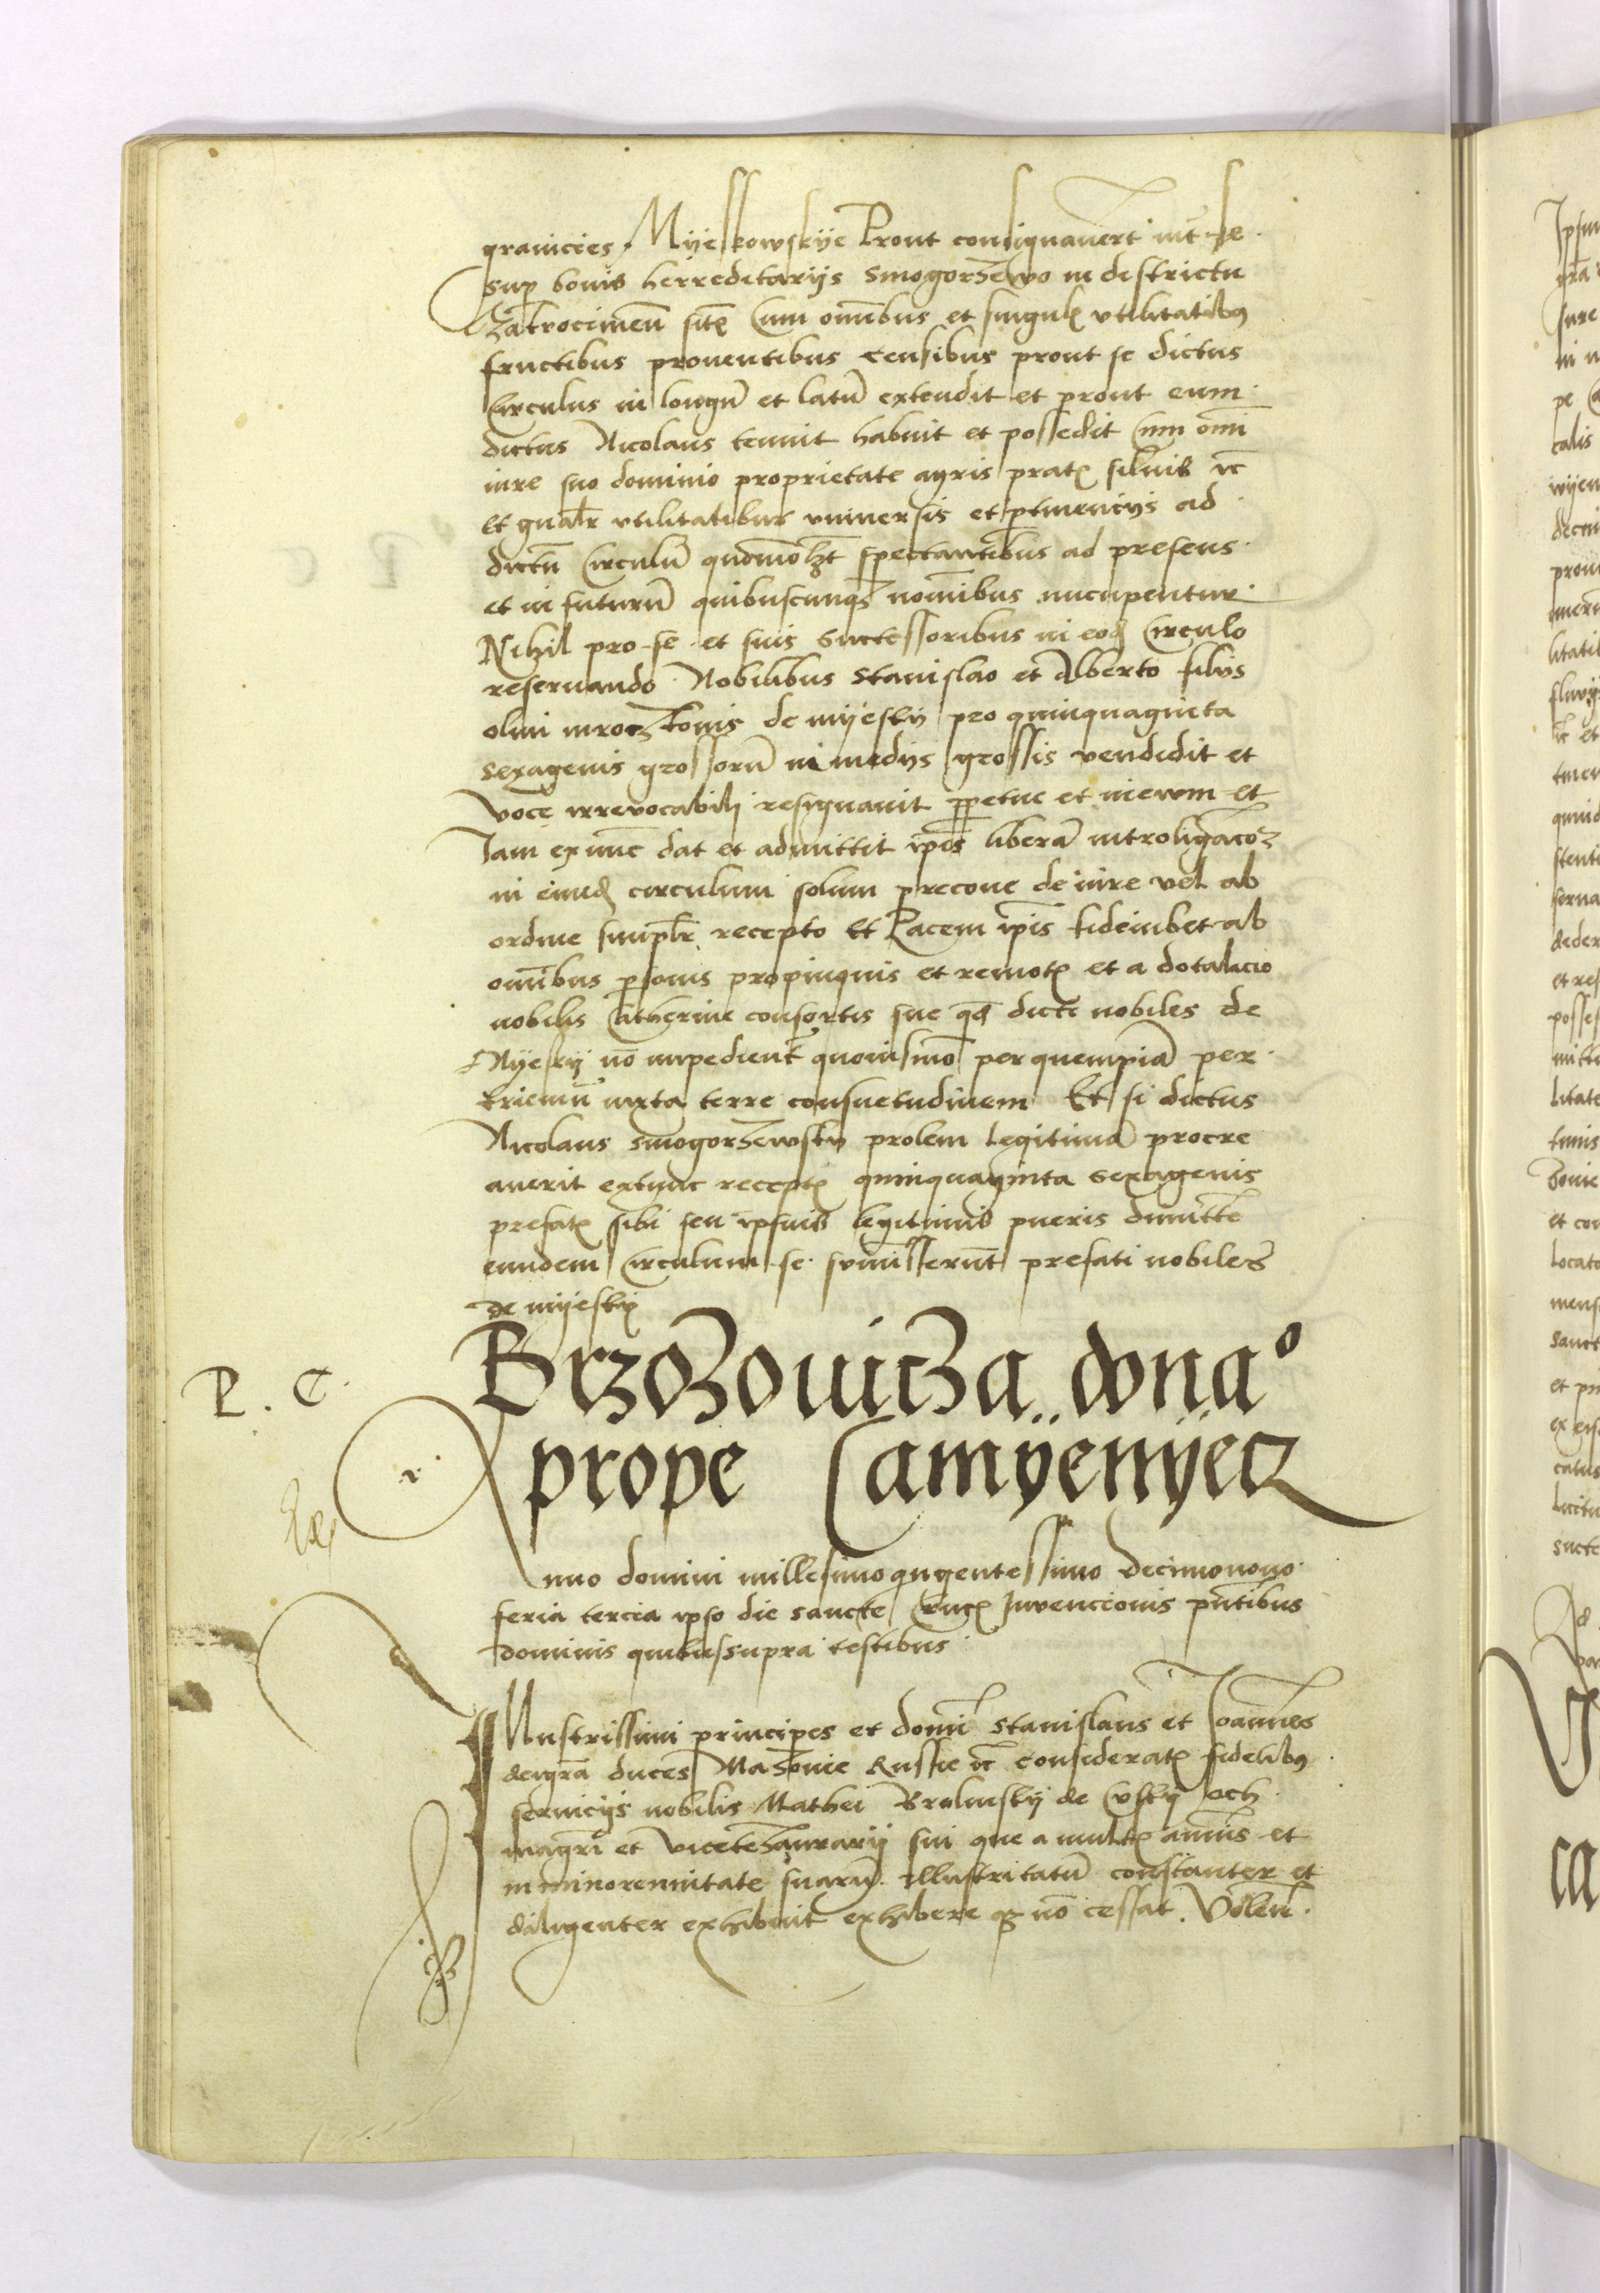 granicies Myeskowskye Prout consignaverūt int̄ se
sup bonis herreditariis Smogorzewo in destrictu
Zakrocimen̄ sitꝭ Cum omībus et singulꝭ utilitatibꝯ
fructibus proventibus censibus prout se dictus
Circulus in longū et latū extendit et prout eum
dictus Nicolaus tenuit habuit et possedit Cum omī
iure suo dominio proprietate agris pratꝭ silvis ꝛc̄
et gn̄alr̄ utilitatibus universis et ptinencijs ad
dictū Circulū quomōlꝫt spectantibus ad presens
et in futurū quibuscunqꝫ nomībus nucupentur
Nihil pro se et suis Successoribus in eod̄ Circulo
reservando Nobilibus Stanislao et Alberto filiis
olim mroczkonis de myesky pro quinquaginta
sexagenis grossorū in medijs grossis vendidit et
voce irrevocabili resignavit ppetue et in ewm et
Iam exnūc dat et admittit ip̄os liberā introligacōꝫ
in eund̄ circulum solum precone de iure vel ab
ordine simplr̄ recepto Et Pacem ip̄is fideiubet ab
omībus psonis propinquis et remotꝭ et a dotalicio
nobilis Catherine consortis sue qd̄ dicti nobiles de
Myesky nō impedient̄ quovismō per quempiā per
trienniū iuxta terre consuetudinem Et si dictus
Nicolaus Smogorzewsky prolem legitimā procre
averit extunc receptꝭ quinquaginta sexagenis
prefatꝭ sibi seu ipsius legitimis pueris dimitte
eundem Circulum se sumiserūt prefati nobiles
de myesky
Brzozowicza donaᵒ
prope Camÿenÿecz
P. C.
Anno domini millesimo qngentessimo decimonono
feria tercia ipso die sancte Crucꝭ Invencionis pn̄tibus
dominis quibussupra testibus
Illustrissimi principes et domī Stanislaus et Joannes
deigrā duces Mazovie Russie ꝛc̄ consideratꝭ fidelibꝯ
servicijs nobilis Mathei Brolinsky de
magrī et vicetezaurarij sui que a multꝭ annis et
in minorennitate suarū Illustritatū constanter et
diligenter exhibuit exhibere qꝫ nō cessat Volen̄